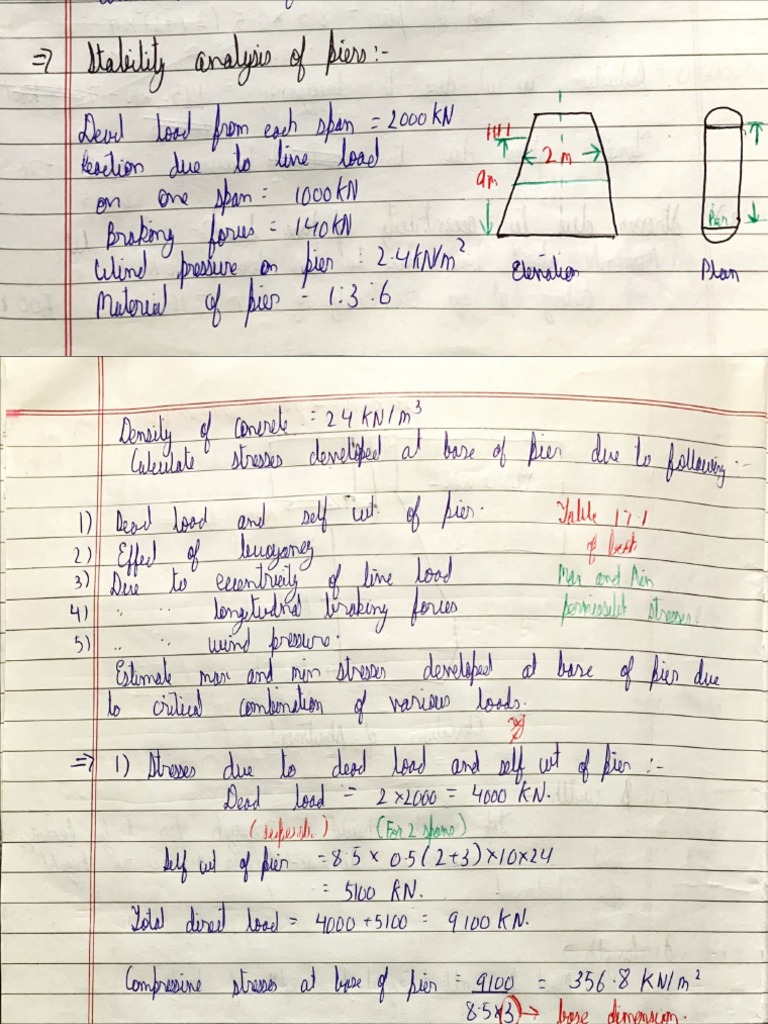 => Stability analysis of piers :-
Dead load from each span = 2000 KN
Reaction due to live load
on one span = 1000 KN
Braking forces = 140 KN
Wind pressure on pier : 2.4 KN/m²
Material of pier = 1:3:6
2 m
9m
Elevation
Pier
Plan
Density of concrete = 24 KN/m³
Calculate stresses developed at base of pier due to following :-
1) Dead load and self wt. of pier.
Table 17.1
2) Effect of buoyancy
of
3) Due to eccentricity of live load
Max and Min
4) " " longitudnal braking forces
permissible stresses.
5) " " wind pressure.
Estimate max and min stresses developed at base of pier due
to critical combination of various loads.
=> 1) Stresses due to dead load and self wt of pier :-
Dead load = 2 x 2000 = 4000 KN.
(For 2 spans)
Self wt of pier = 8.5 x 0.5 (2+3) x 10 x 24
= 5100 KN.
Total direct load = 4000 + 5100 = 9100 KN.
Compressive stresses at base of pier = 9100 = 356.8 KN/m²
8.5 x 3 → base dimension.